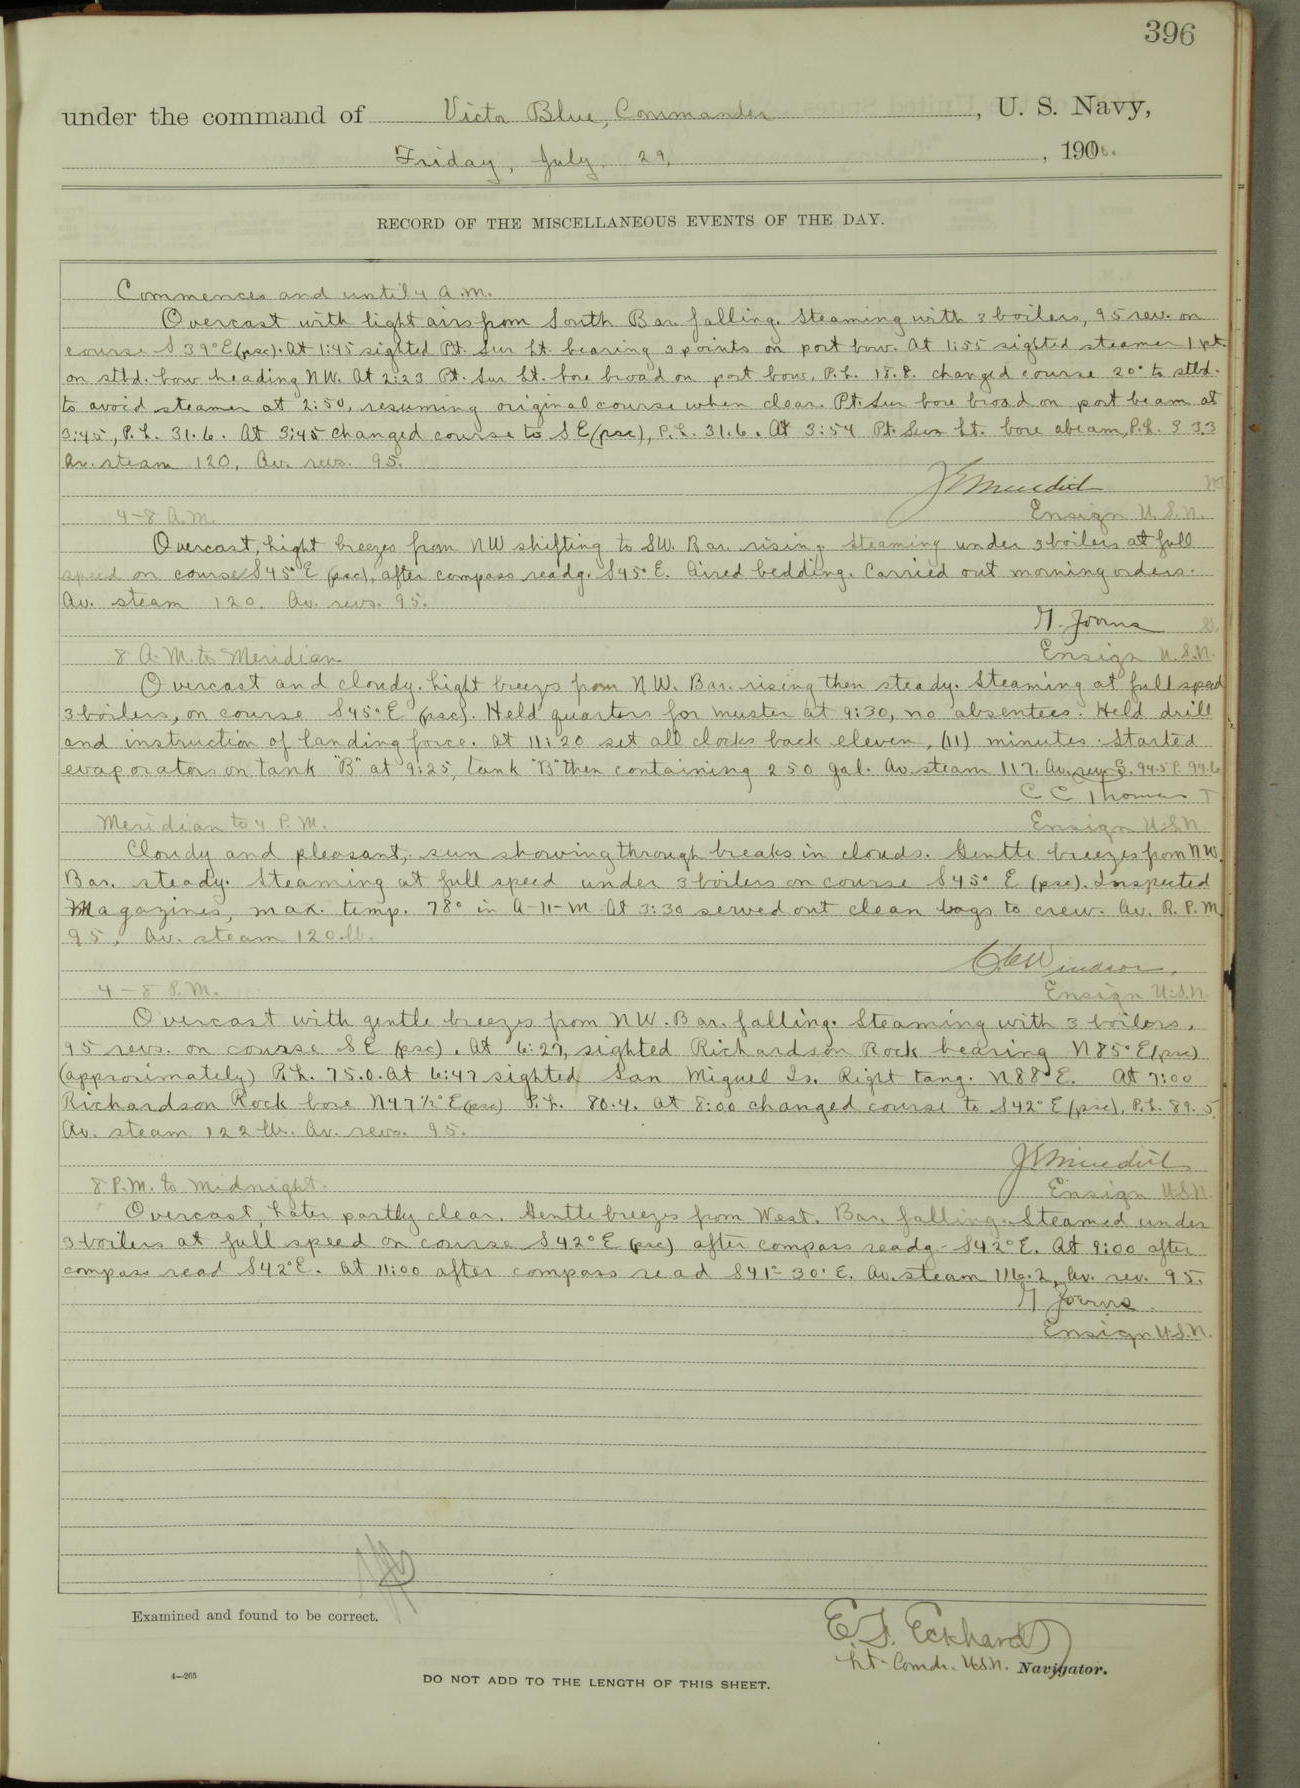 396
under the command of Victor Blue, Commander, U. S. Navy,
Friday, July 29, 190
RECORD OF THE MISCELLANEOUS EVENTS OF THE DAY.
Commences and until 4 A.M.
Overcast with light airs from South Bar. falling. Steaming with 3 boilers, 95 rev. on
course S 39° E (psc). At 1:45 sighted Pt. Sur Lt. bearing 3 points on port bow. At 1:55 sighted steamer 1 pt.
on stbd. bow heading NW. At 2:23 Pt. Sur Lt. bore broad on port bow, P.L. 18.8. changed course 20° to stbd.
to avoid steamer at 2:50, resuming original course when clear. Pt. Sur bore broad on port beam at
3:45, P.L. 31.6. At 3:45 changed course to SE (psc), P.L. 31.6. At 3:54 Pt. Sur Lt. bore abeam, P.L. 33.3
Av. steam 120, Av. revs. 95.
4-8 A.M.
Ensign U.S.N.
Overcast, Light breezes from NW shifting to SW. Bar. rising. Steaming under 3 boilers at full
speed on course S45° E (psc), after compass readg. S45° E. Aired bedding. Carried out morning orders.
Av. steam 120. Av. revs. 95.
8 A.M. to Meridian
Ensign U.S.N.
Overcast and cloudy. Light breezes from NW. Bar. rising then steady. Steaming at full speed
3 boilers, on course S45° E (psc). Held quarters for muster at 9:30, no absentees. Held drill
and instruction of landing force. At 11:20 set all clocks back eleven, (11) minutes. Started
evaporators on tank "B" at 9:25, tank "B" then containing 250 gal. Av. steam 117. Av. rev. S. 94.5 P. 94.6
C C Thomas
Meridian to 4 P.M.
Ensign U.S.N.
Cloudy and pleasant, sun showing through breaks in clouds. Gentle breezes from NW.
Bar. steady. Steaming at full speed under 3 boilers on course S45° E (psc). Inspected
Magazines, max. temp. 78° in A-11-M. At 3:30 served out clean bags to crew. Av. R.P.M.
95, Av. steam 120 lb.
C.C. Windsor.
4-8 P.M.
Ensign U.S.N.
Overcast with gentle breezes from NW. Bar. falling. Steaming with 3 boilers,
95 revs. on course SE (psc). At 6:27, sighted Richardson Rock bearing N85° E (psc)
(approximately) P.L. 75.0. At 6:47 sighted San Miguel Is. Right tang. N88° E. At 7:00
Richardson Rock bore N47½° E (psc) P.L. 80.4. At 8:00 changed course to S42° E (psc), P.L. 89.5,
Av. steam 122 lb. Av. revs. 95.
8 P.M. to Midnight.
Ensign U.S.N.
Overcast, Later partly clear. Gentle breezes from West. Bar. falling. Steamed under
3 boilers at full speed on course S42° E (psc) after compass readg. S42° E. At 9:00 after
compass read S42° E. At 11:00 after compass read S41° 30' E. Av. steam 116.2, Av. rev. 95.
Ensign U.S.N.
Examined and found to be correct.
Lt. Comdr. U.S.N. Navigator.
4—265
DO NOT ADD TO THE LENGTH OF THIS SHEET.